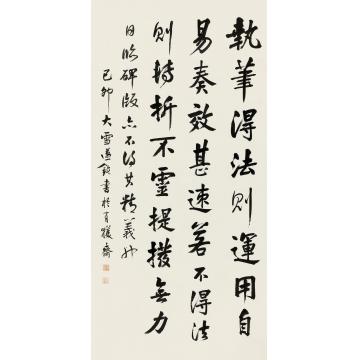 執筆得法則運用自
易奏效甚速若不得法
則轉折不靈提掇無力
日臨碑版亦不得其精義也
己卯大雪遂欽書於有獲齋